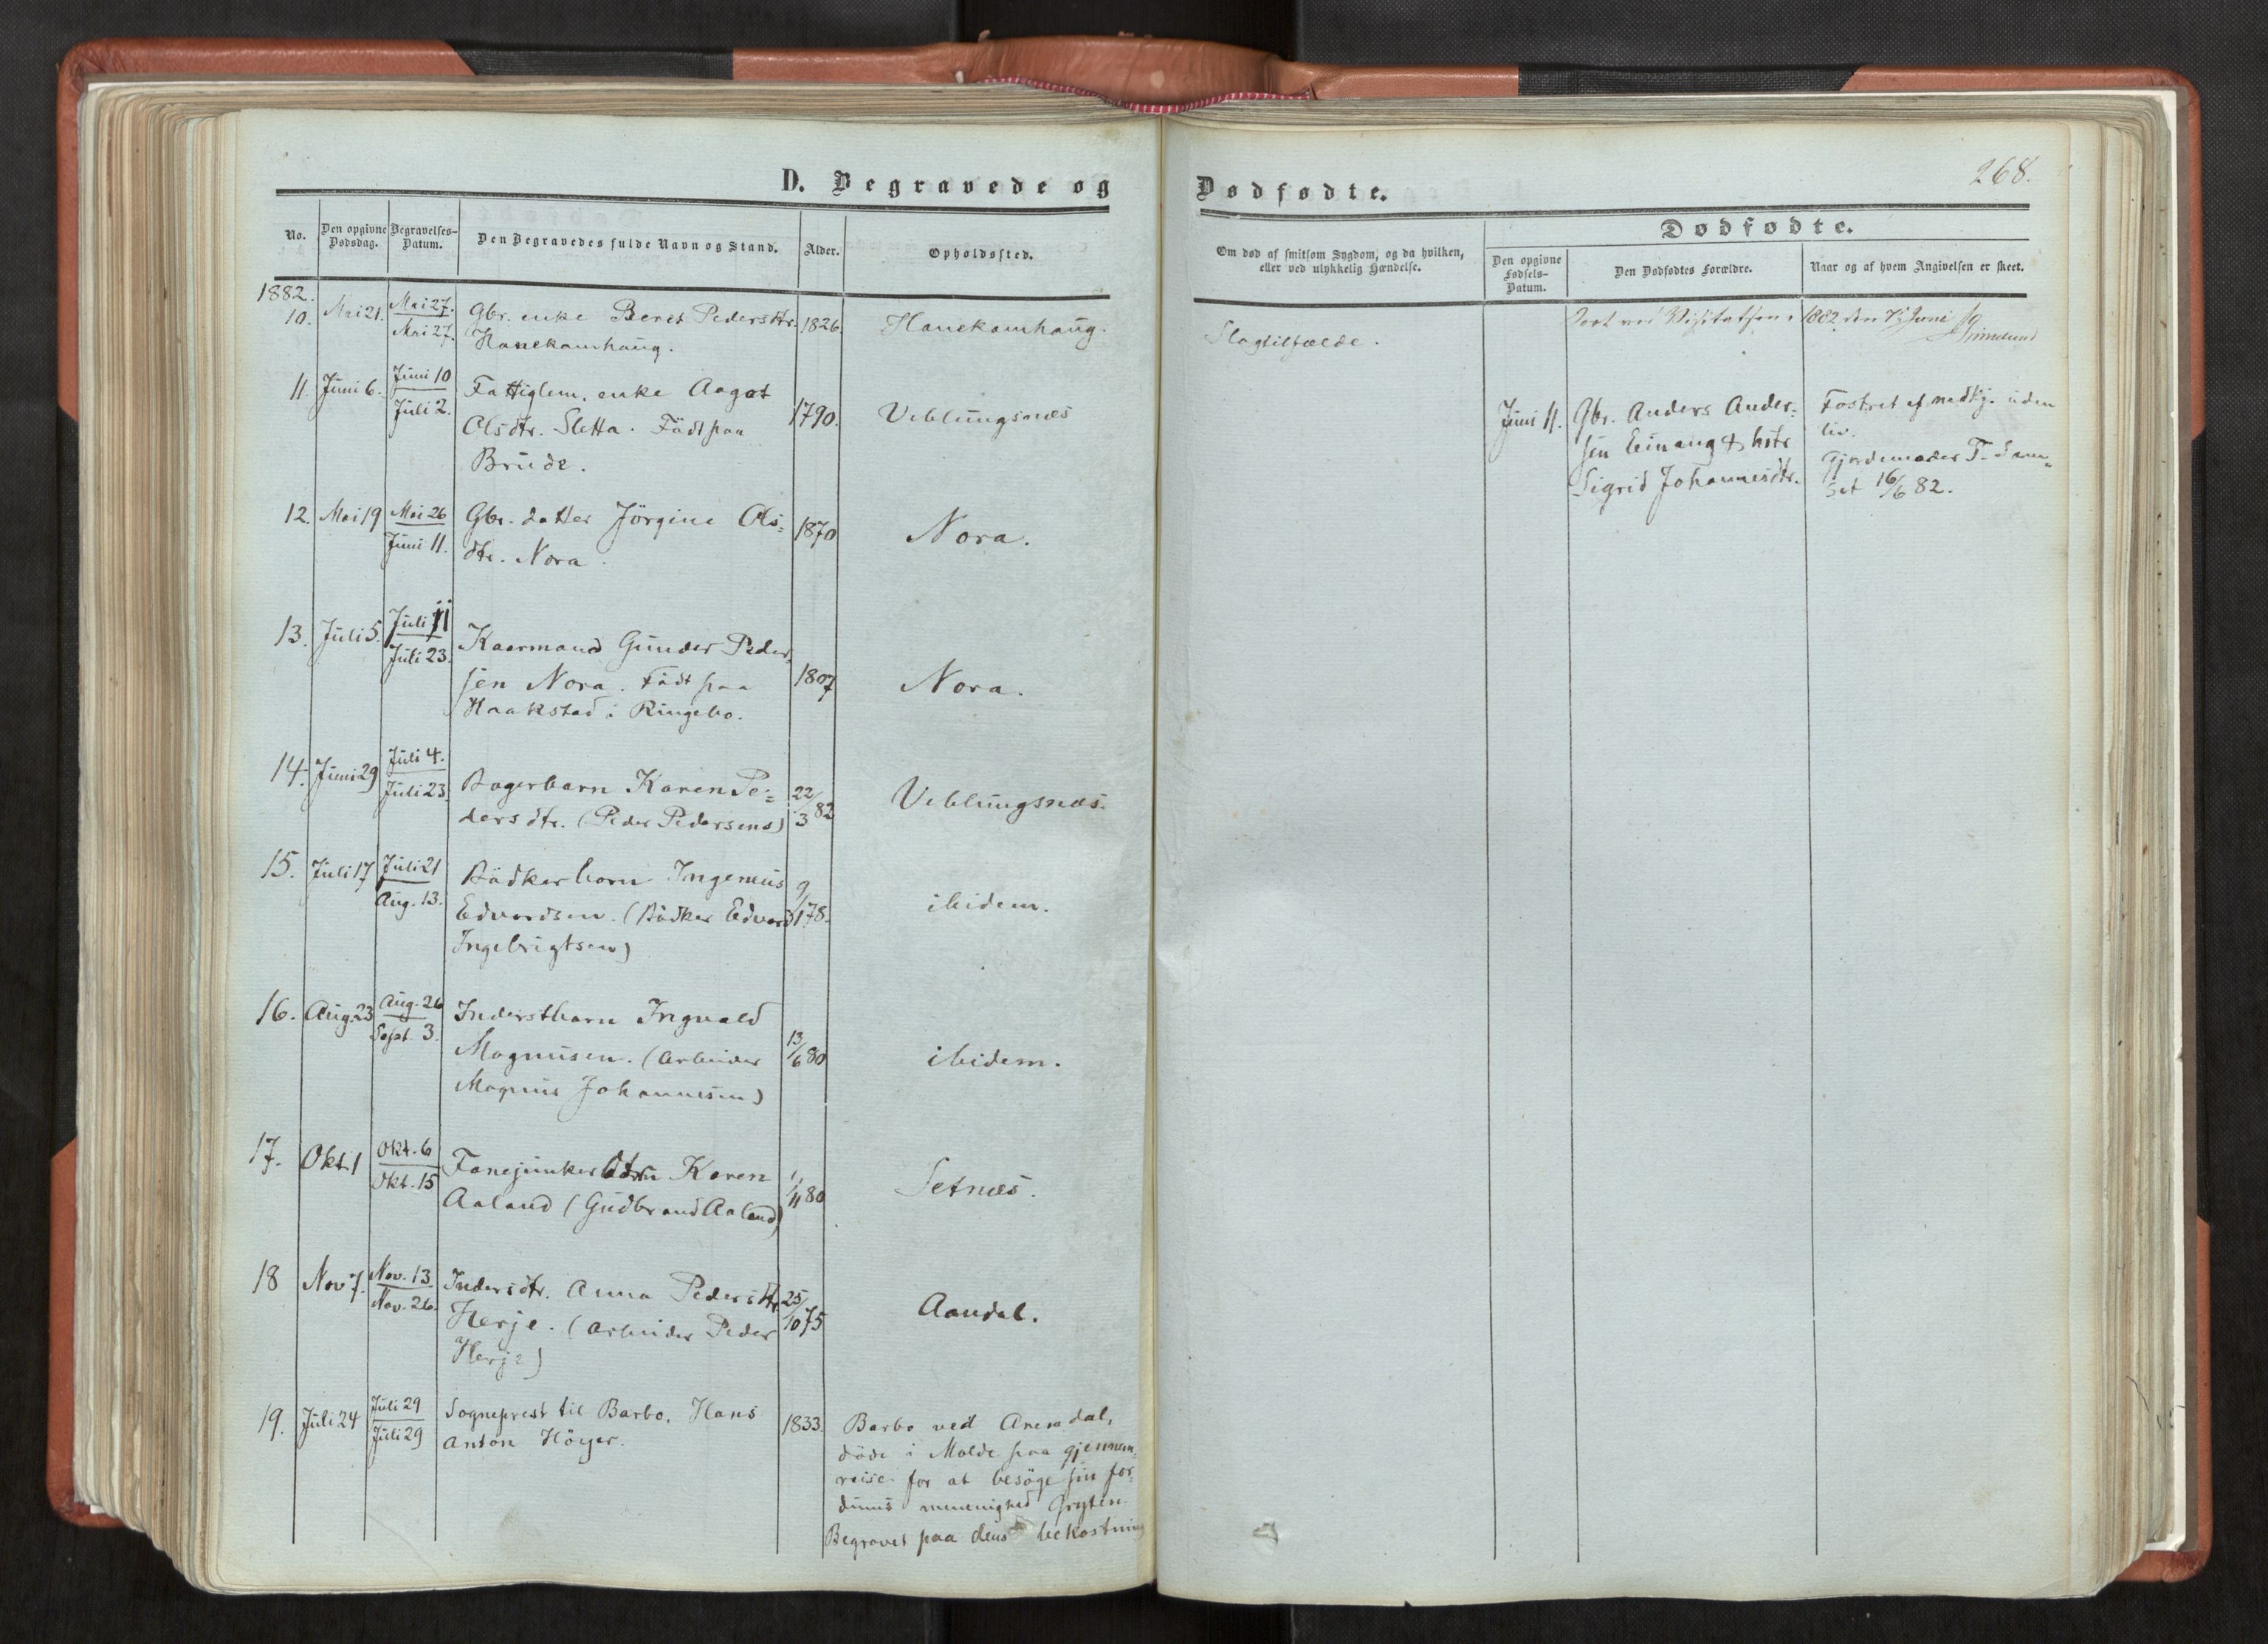 D. Begravede og
No.
Den opgivne Dødsdag.
Begravelses-Datum.
Den Begravedes fulde Navn og Stand.
Alder.
Opholdssted.
1882.
10. Mai 21. Mai 27. Gbr. enke Beret Pedersdtr. 1826. Hanekamhaug.
Mai 27. Hanekamhaug.
11. Juni 6. Juni 10 Fattiglem. enke Aagot
Juli 2. Olsdtr. Sletta. Född paa 1790. Veblungsnæs
Brude.
12. Mai 19 Mai 26 Gbr. datter Jörgine Ols- 1870 Nora.
Juni 11. dtr. Nora.
13. Juli 5. Juli 11 Kaarmand Gunder Peder-
Juli 23. sen Nora. Född paa 1807 Nora.
Haakstad i Ringebo.
14. Juni 29 Juli 4. Bagerbarn Karen Pe- 22/3 82 Veblungsnæs.
Juli 23. dersdtr. (Peder Pedersens)
15. Juli 17 Juli 21 Bödkerbarn Ingemus 9/1 78. ibidem.
Aug. 13. Edvardsen. (Bödker Edvard
Ingebrigtsen)
16. Aug. 23 Aug. 26 Inderstbarn Ingvald
Sept. 3. Magnusen. (Arbeider 13/6 80 ibidem.
Magnus Johannesen)
17. Okt. 1 Okt. 6 Fanejunker Karen 1/11 80 Setnæs.
Okt. 15 Aaland (Gudbrand Aaland)
18 Nov 7. Nov. 13 Indersdtr. Anna Pedersdtr. 25/10 75 Aandal.
Nov. 26. Herje. (Arbeider Peder
Herje)
19. Juli 24 Juli 29 Sogneprest til Barbo, Hans 1833. Barbo ved Arendal,
Juli 29 Anton Höyer. döde i Molde paa gjennem-
reise for at besöge sin for-
dums menighed Gryten.
Begravet paa dens bekostning
Dødfødte.
268.
Om død af smitsom Sygdom, og da hvilken,
eller ved ulykkelig Hændelse.
Dødfødte.
Den opgivne Fødsels-Datum.
Den Dødfødtes Forældre.
Naar og af hvem Angivelsen er skeet.
Seet ved Visitatsen 1882 den 7. Juni Grimelund
Slagtilfælde.
Juni 11. Gbr. Anders Ander- Fostret ef. nedkj. uden
sen Einang & hstr liv.
Sigrid Johannesdtr. Gjordemoder T. Sam-
set 16/6 82.